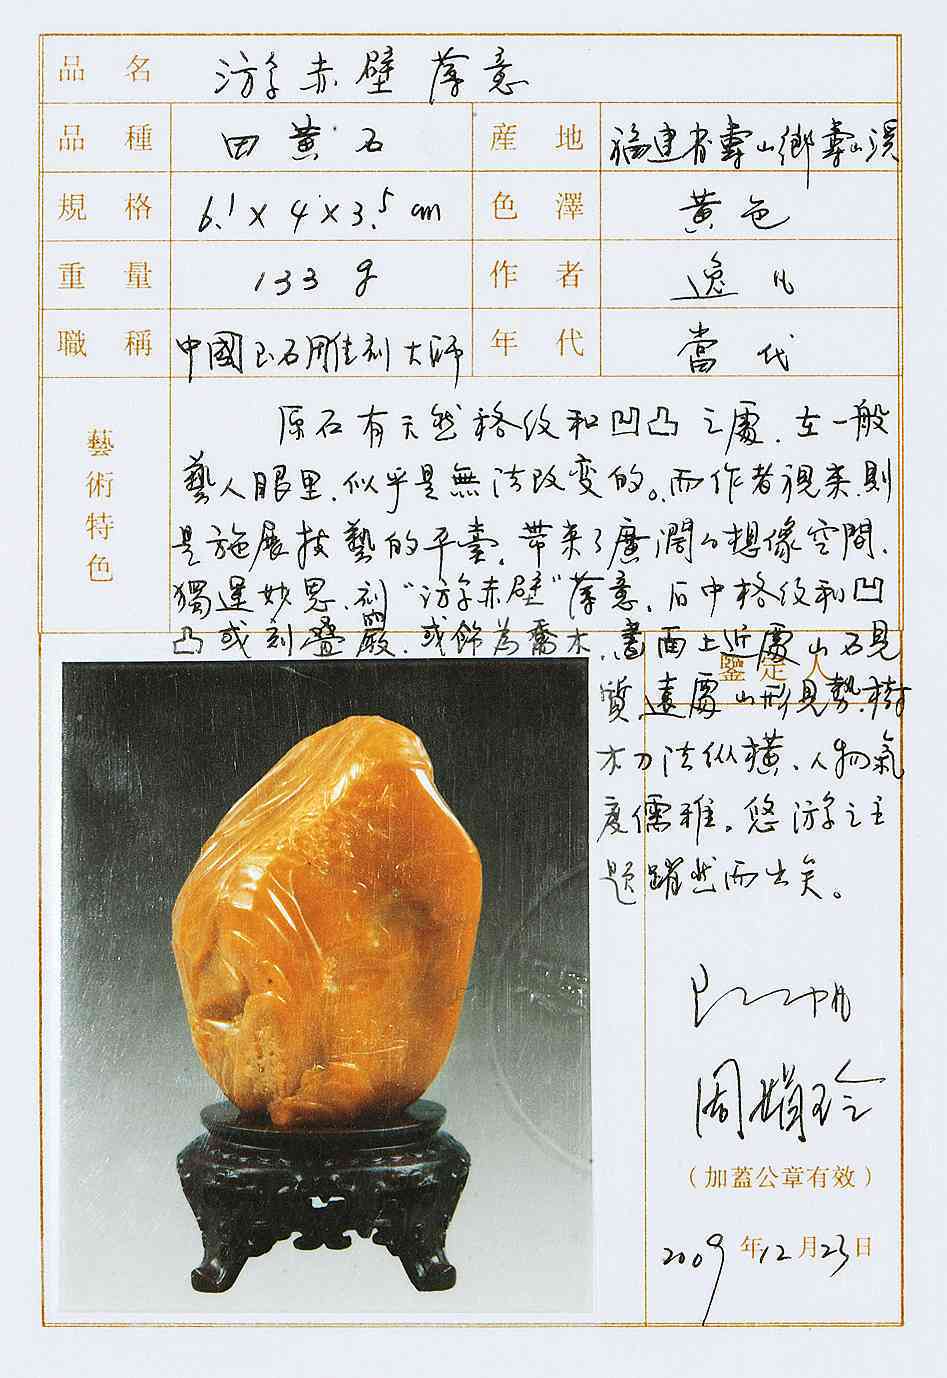 品名 游赤壁 薄意
品種 田黃石 産地 福建省壽山鄉壽山溪
規格 6.1×4×3.5cm 色澤 黃色
重量 133g 作者 逸凡
職稱 中國玉石雕刻大師 年代 當代
藝術特色
原石有天然格纹和凹凸之處.在一般
藝人眼里.似乎是無法改变的。而作者視来.則
是施展技藝的平臺。帶来了廣濶的想像空間.
獨運妙思.刻“游赤壁”薄意.石中格纹和凹
凸或刻叠巖.或飾為喬木.畫面上近處山石見
鑒定人
質.遠處山形見勢.樹
木刀法纵橫.人物氣
度儒雅。悠游之主
题躍然而出矣。
周娟玲
（加蓋公章有效）
2009年12月23日